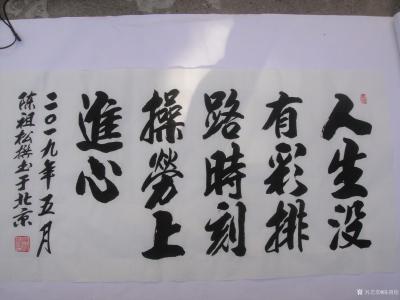 人生没
有彩排
路時刻
操勞上
進心
二〇一九年五月
陈祖松撰书于北京